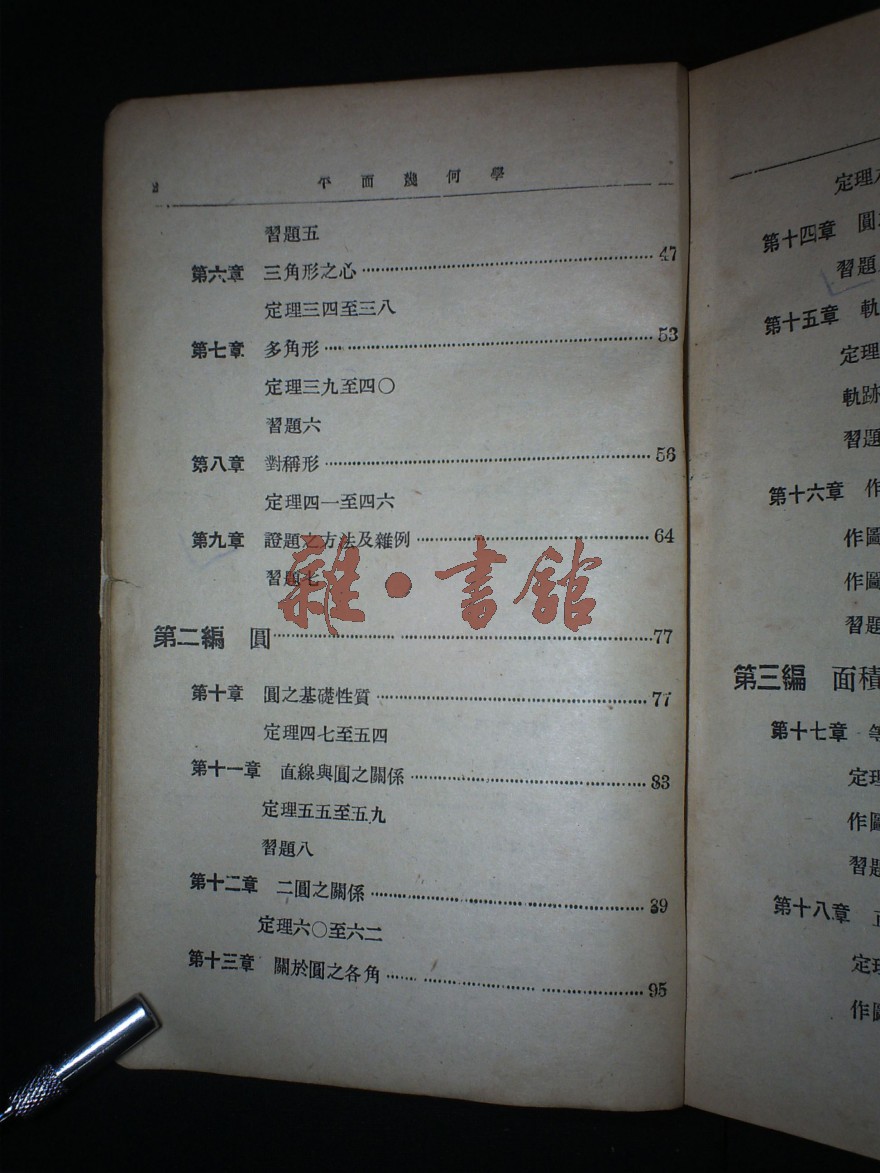 2 平面幾何學
習題五
第六章 三角形之心 47
定理三四至三八
第七章 多角形 53
定理三九至四〇
習題六
第八章 對稱形 56
定理四一至四六
第九章 證題之方法及雜例 64
習題七
雜·書館
第二編 圓 77
第十章 圓之基礎性質 77
定理四七至五四
第十一章 直線與圓之關係 83
定理五五至五九
習題八
第十二章 二圓之關係 89
定理六〇至六二
第十三章 關於圓之各角 95
定理
第十四章 圓
習題
第十五章 軌
定理
軌跡
習題
第十六章 作
作圖
作圖
習題
第三編 面積
第十七章 等
定理
作圖
習題
第十八章
定理
作圖